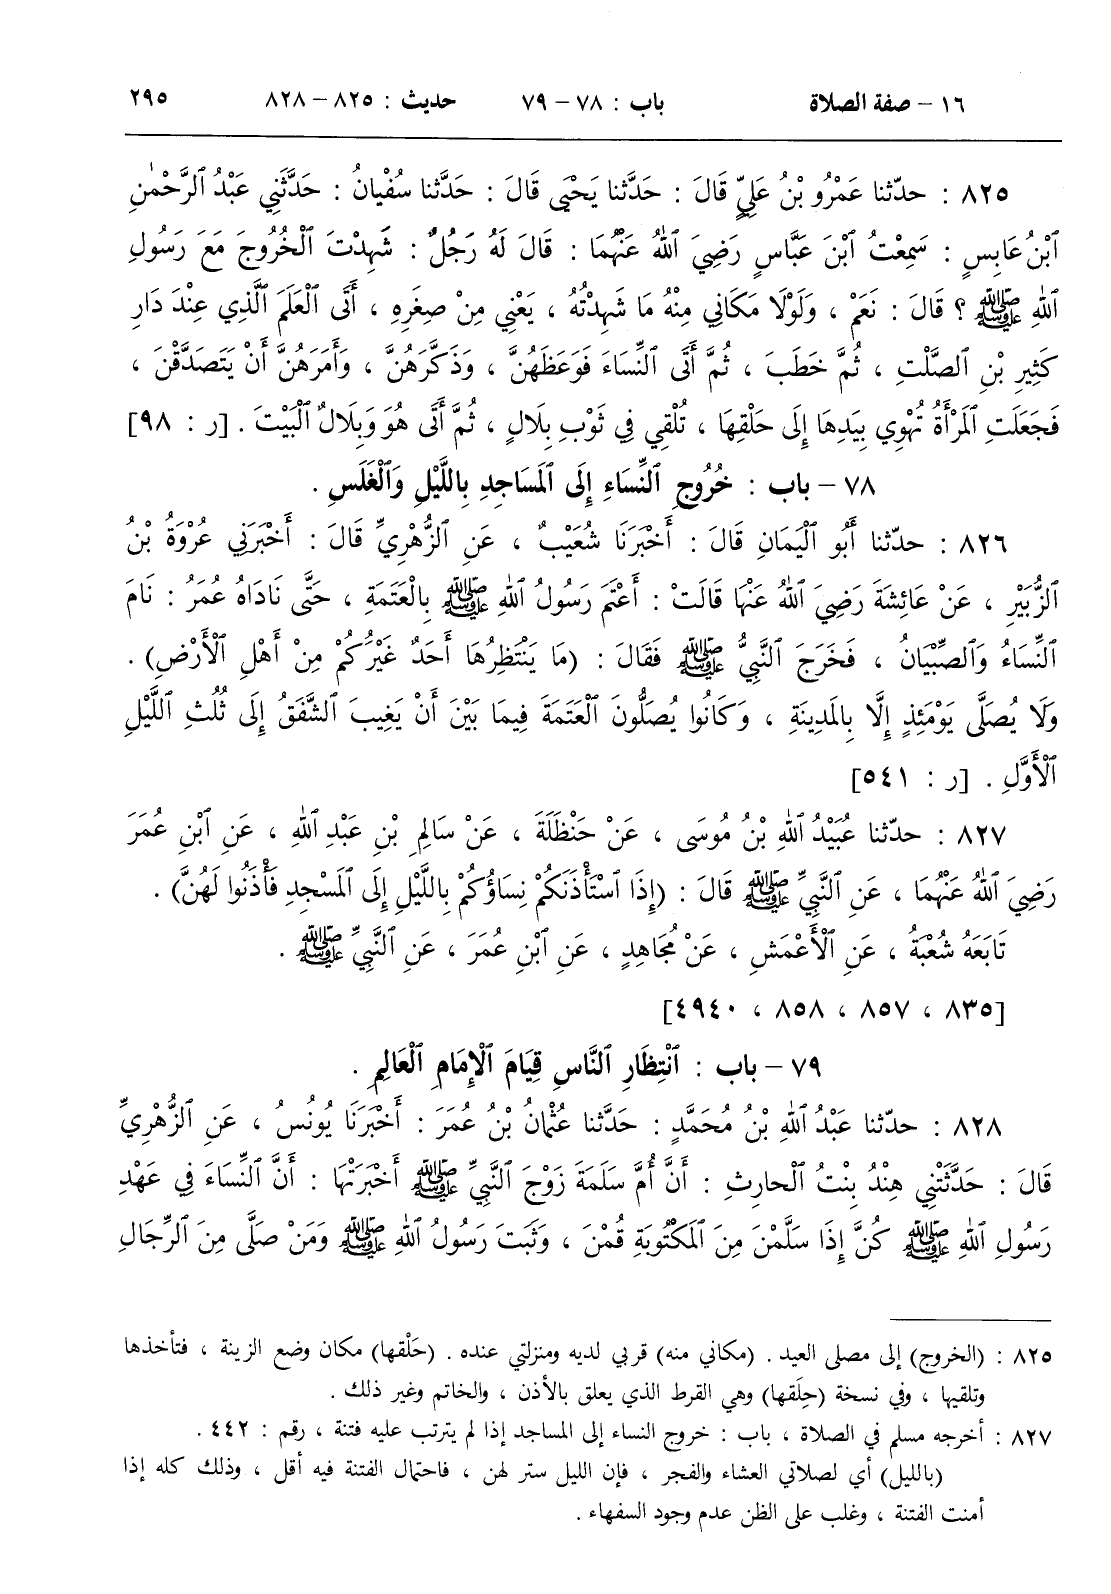 ١٦ – صفة الصلاة باب : ٧٨ – ٧٩ حديث : ٨٢٥ – ٨٢٨ ٢٩٥
٨٢٥ : حدّثنا عَمْرُو بْنُ عَلِيٍّ قَالَ : حَدَّثنا يَحْيَى قَالَ : حَدَّثنا سُفْيانُ : حَدَّثَنِي عَبْدُ ٱلرَّحْمٰنِ
ٱبْنُ عَابِسٍ : سَمِعْتُ ٱبْنَ عَبَّاسٍ رَضِيَ ٱللهُ عَنْهُمَا : قَالَ لَهُ رَجُلٌ : شَهِدْتَ ٱلْخُرُوجَ مَعَ رَسُولِ
ٱللهِ ﷺ ؟ قَالَ : نَعَمْ ، وَلَوْلَا مَكَانِي مِنْهُ مَا شَهِدْتُهُ ، يَعْنِي مِنْ صِغَرِهِ ، أَتَى ٱلْعَلَمَ ٱلَّذِي عِنْدَ دَارِ
كَثِيرِ بْنِ ٱلصَّلْتِ ، ثُمَّ خَطَبَ ، ثُمَّ أَتَى ٱلنِّسَاءَ فَوَعَظَهُنَّ ، وَذَكَّرَهُنَّ ، وَأَمَرَهُنَّ أَنْ يَتَصَدَّقْنَ ،
فَجَعَلَتِ ٱلْمَرْأَةُ تُهْوِي بِيَدِهَا إِلَى حَلْقِهَا ، تُلْقِي فِي ثَوْبِ بِلَالٍ ، ثُمَّ أَتَى هُوَ وَبِلَالٌ ٱلْبَيْتَ . [ر : ٩٨]
٧٨ – باب : خُرُوجِ ٱلنِّسَاءِ إِلَى ٱلْمَسَاجِدِ بِاللَّيْلِ وَٱلْغَلَسِ .
٨٢٦ : حدّثنا أَبُو ٱلْيَمَانِ قَالَ : أَخْبَرَنَا شُعَيْبٌ ، عَنِ ٱلزُّهْرِيِّ قَالَ : أَخْبَرَنِي عُرْوَةُ بْنُ
ٱلزُّبَيْرِ ، عَنْ عَائِشَةَ رَضِيَ ٱللهُ عَنْهَا قَالَتْ : أَعْتَمَ رَسُولُ ٱللهِ ﷺ بِالْعَتَمَةِ ، حَتَّى نَادَاهُ عُمَرُ : نَامَ
ٱلنِّسَاءُ وَٱلصِّبْيَانُ ، فَخَرَجَ ٱلنَّبِيُّ ﷺ فَقَالَ : (مَا يَنْتَظِرُهَا أَحَدٌ غَيْرُكُمْ مِنْ أَهْلِ ٱلْأَرْضِ) .
وَلَا يُصَلَّى يَوْمَئِذٍ إِلَّا بِالْمَدِينَةِ ، وَكَانُوا يُصَلُّونَ ٱلْعَتَمَةَ فِيمَا بَيْنَ أَنْ يَغِيبَ ٱلشَّفَقُ إِلَى ثُلُثِ ٱللَّيْلِ
ٱلْأَوَّلِ . [ر : ٥٤١]
٨٢٧ : حدّثنا عُبَيْدُ ٱللهِ بْنُ مُوسَى ، عَنْ حَنْظَلَةَ ، عَنْ سَالِمِ بْنِ عَبْدِ ٱللهِ ، عَنِ ٱبْنِ عُمَرَ
رَضِيَ ٱللهُ عَنْهُمَا ، عَنِ ٱلنَّبِيِّ ﷺ قَالَ : (إِذَا ٱسْتَأْذَنَكُمْ نِسَاؤُكُمْ بِاللَّيْلِ إِلَى ٱلْمَسْجِدِ فَأْذَنُوا لَهُنَّ) .
تَابَعَهُ شُعْبَةُ ، عَنِ ٱلْأَعْمَشِ ، عَنْ مُجَاهِدٍ ، عَنِ ٱبْنِ عُمَرَ ، عَنِ ٱلنَّبِيِّ ﷺ .
[٨٣٥ ، ٨٥٧ ، ٨٥٨ ، ٤٩٤٠]
٧٩ – باب : ٱنْتِظَارِ ٱلنَّاسِ قِيَامَ ٱلْإِمَامِ ٱلْعَالِمِ .
٨٢٨ : حدّثنا عَبْدُ ٱللهِ بْنُ مُحَمَّدٍ : حَدَّثنا عُثْمَانُ بْنُ عُمَرَ : أَخْبَرَنَا يُونُسُ ، عَنِ ٱلزُّهْرِيِّ
قَالَ : حَدَّثَتْنِي هِنْدُ بِنْتُ ٱلْحارِثِ : أَنَّ أُمَّ سَلَمَةَ زَوْجَ ٱلنَّبِيِّ ﷺ أَخْبَرَتْهَا : أَنَّ ٱلنِّسَاءَ فِي عَهْدِ
رَسُولِ ٱللهِ ﷺ كُنَّ إِذَا سَلَّمْنَ مِنَ ٱلْمَكْتُوبَةِ قُمْنَ ، وَثَبَتَ رَسُولُ ٱللهِ ﷺ وَمَنْ صَلَّى مِنَ ٱلرِّجَالِ
٨٢٥ : (الخروج) إلى مصلى العيد . (مكاني منه) قربي لديه ومنزلتي عنده . (حَلْقها) مكان وضع الزينة ، فتأخذها
وتلقيها ، وفي نسخة (حِلَقها) وهي القرط الذي يعلق بالأذن ، والخاتم وغير ذلك .
٨٢٧ : أخرجه مسلم في الصلاة ، باب : خروج النساء إلى المساجد إذا لم يترتب عليه فتنة ، رقم : ٤٤٢ .
(بالليل) أي لصلاتي العشاء والفجر ، فإن الليل ستر لهن ، فاحتمال الفتنة فيه أقل ، وذلك كله إذا
أمنت الفتنة ، وغلب على الظن عدم وجود السفهاء .